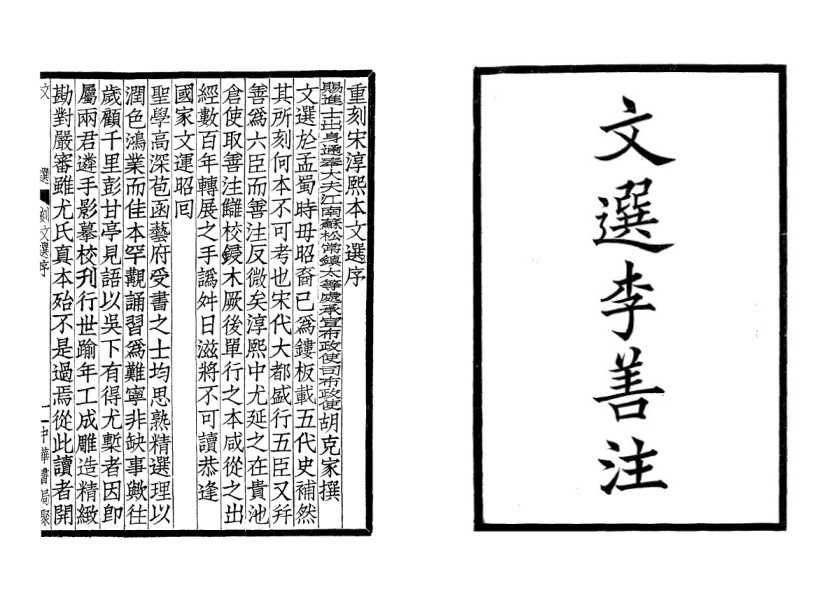 文選李善注
重刻宋淳熙本文選序
賜進士出身通奉大夫江南蘇松常鎮太等處承宣布政使司布政使胡克家撰
文選於孟蜀時毋昭裔已爲鏤板載五代史補然
其所刻何本不可考也宋代大都盛行五臣又幷
善爲六臣而善注反微矣淳熙中尤延之在貴池
倉使取善注讎校鋟木厥後單行之本咸從之出
經數百年轉展之手譌舛日滋將不可讀恭逢
國家文運昭囘
聖學高深苞函藝府受書之士均思熟精選理以
潤色鴻業而佳本罕覯誦習爲難寧非缺事歟往
歲顧千里彭甘亭見語以吳下有得尤槧者因卽
屬兩君遴手影摹校刊行世踰年工成雕造精緻
勘對嚴審雖尤氏真本殆不是過焉從此讀者開
文 選 刻文選序 一 中華書局聚